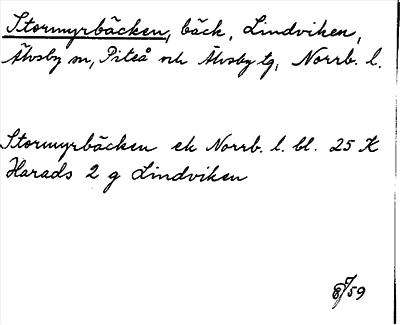 Stormyrbäcken, bäck, Lindviken,
Älvsby sn, Piteå och Älvsby tg, Norrb. l.
Stormyrbäcken ek Norrb. l. bl. 25 K
Harads 2 g Lindviken
59